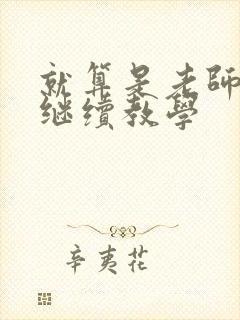 就算是老師
继續教學
辛夷花